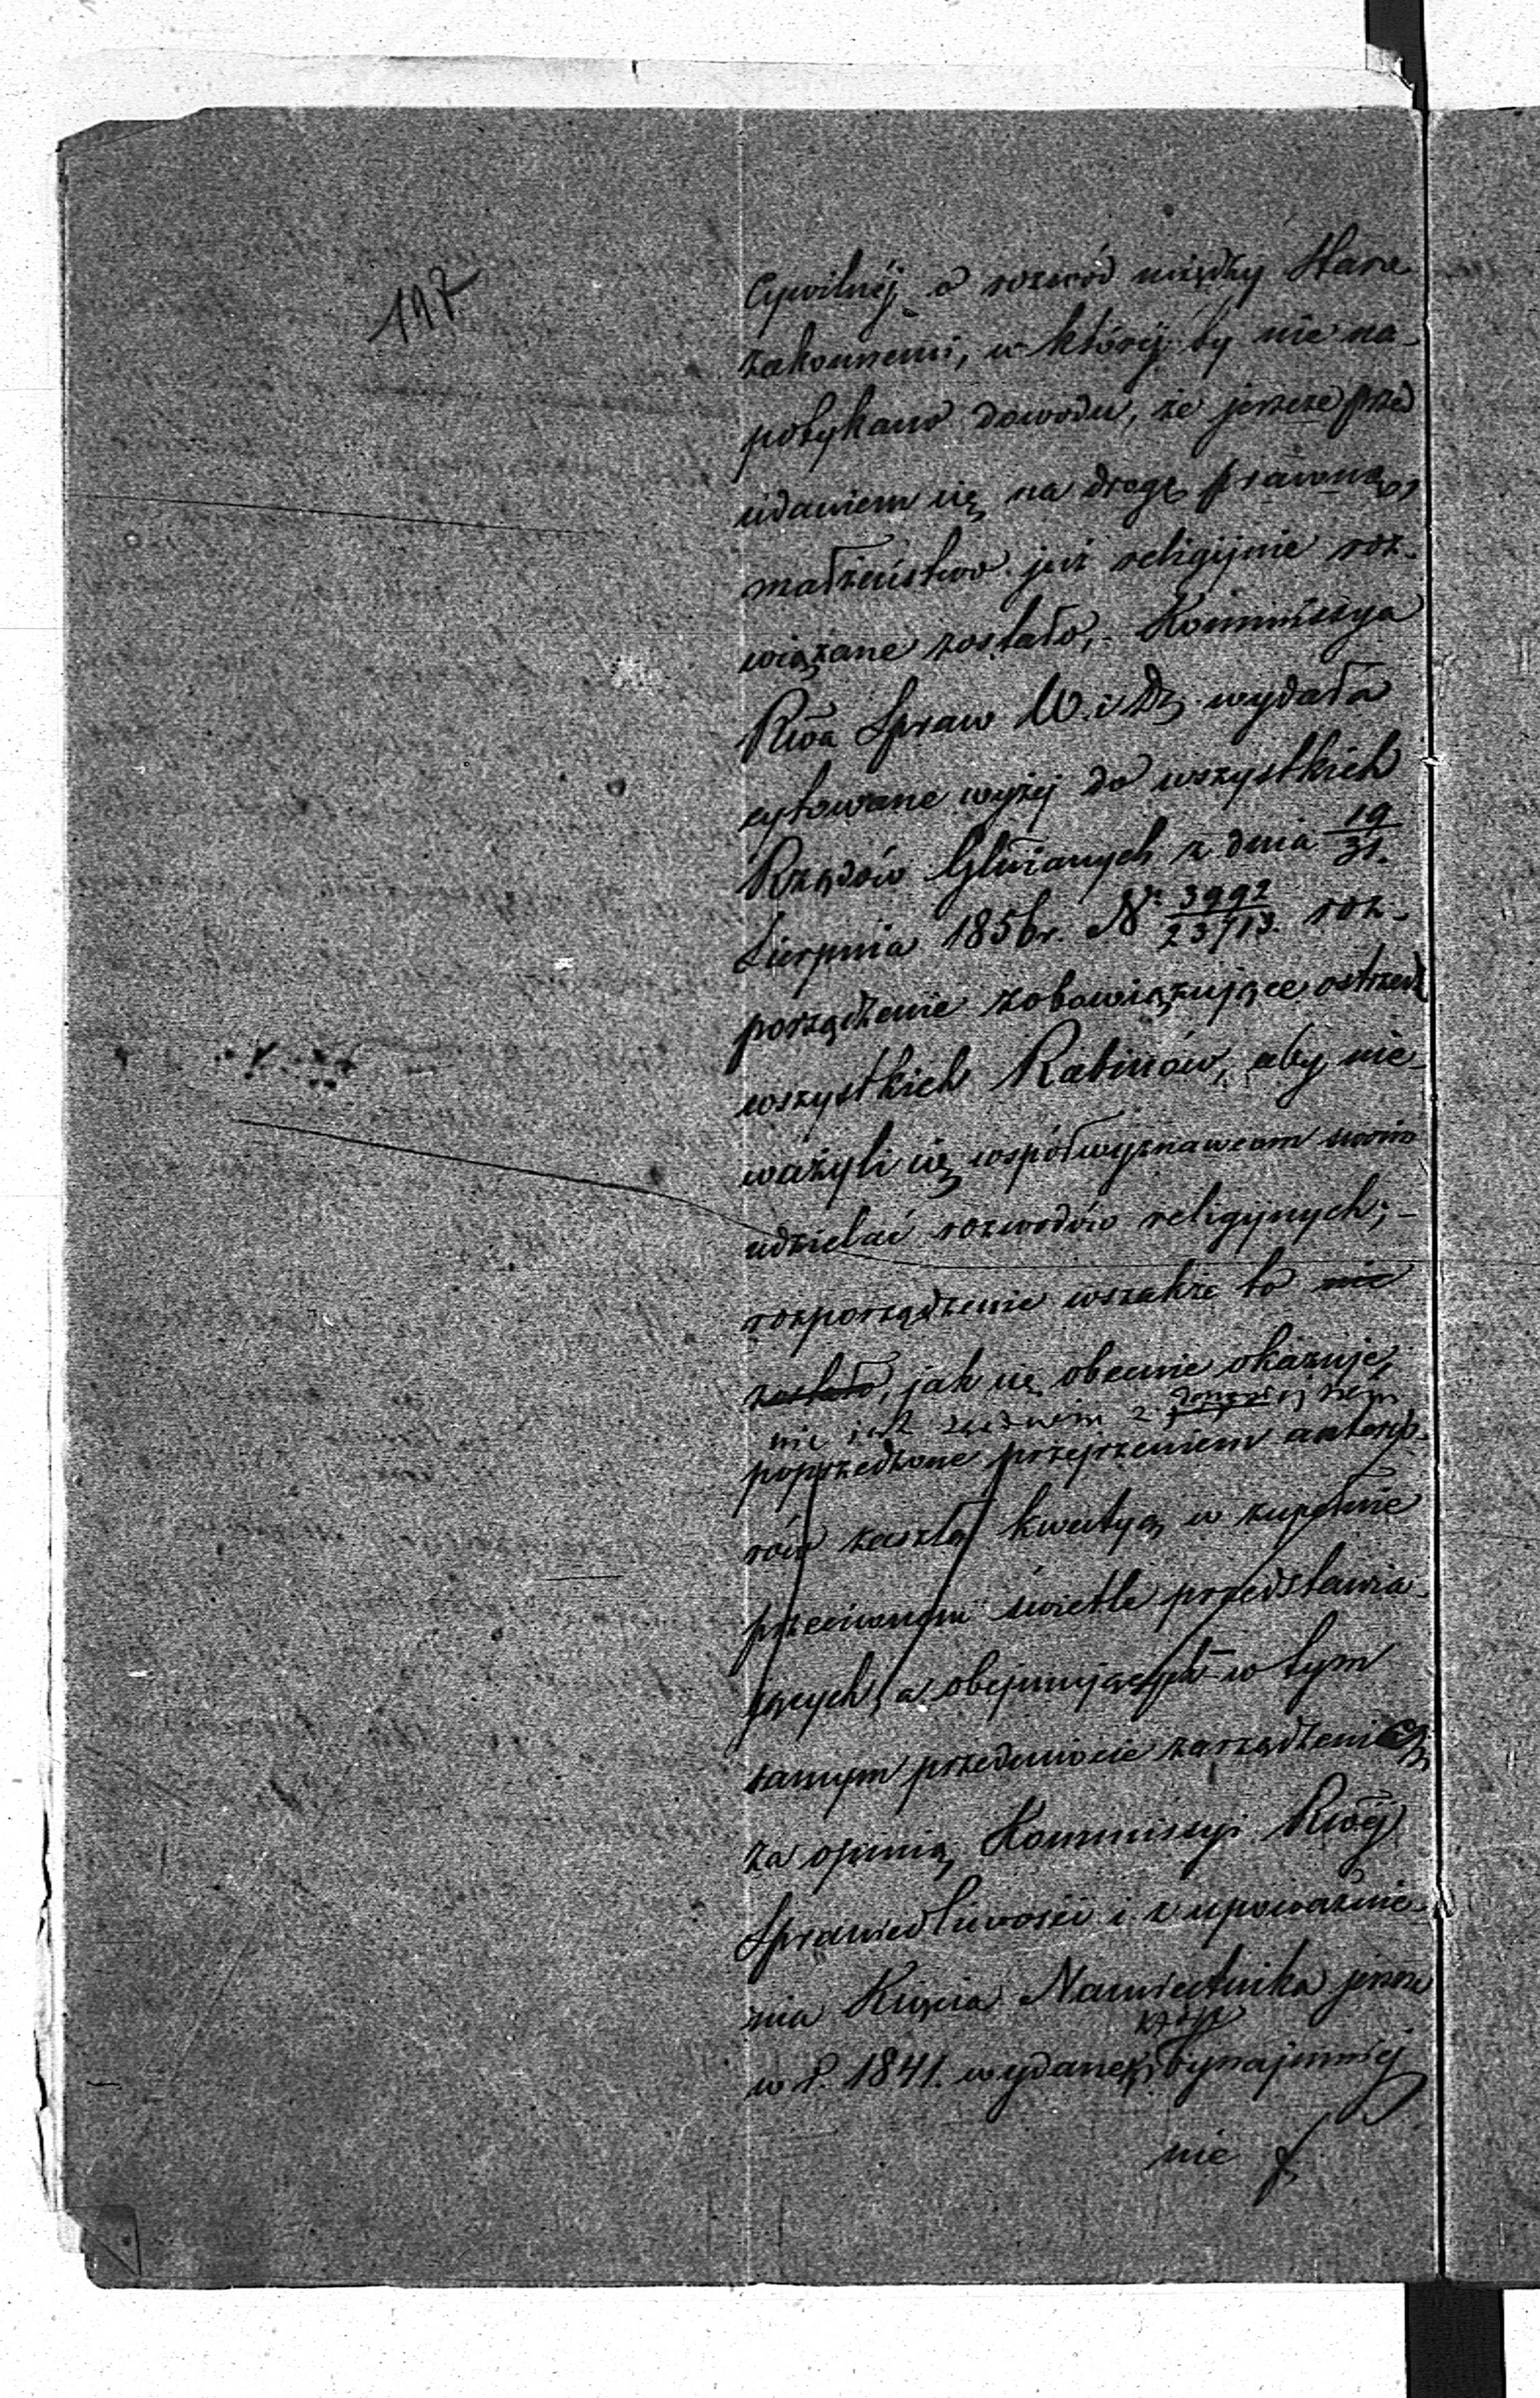 197
Cywilnéj o rozwód między Staro
zakonnemi, w któréj by nie na-
potykano dowodu, że jeszcze przed
udaniem się na drogę prawną,
małżeństwo już religijnie roz-
wiązane zostało, - Kommissya
Rwa Spraw W. i D. wydała
cytowane wyżéj do wszystkich
Rządów Gubianych z dnia 19/31.
Sierpnia 1856 r. N° 3992/23713. roz-
porządzenie zobowiązujące ostrzedz
wszystkich Rabinów, aby nie
ważyli się współwyznawcom swoim
udzielać rozwodów religijnych; -
rozporządzenie wszakże to nie
zostało, jak się obecnie okazuje,
nie jest
poprzedzone przejrzeniem antesp-
rów zaszłą kwestyą w zupełnie
przeciwnym świetle przedstawia-
jących, a obejmujących w tym
samym przedmiocie zarządzenia
za opinią Kommissyi Rwéj
Sprawiedliwości i z upoważnie-
nia Księcia Namiestnika jeszcze
w r. 1841. wydane, bynajmniéj
nie